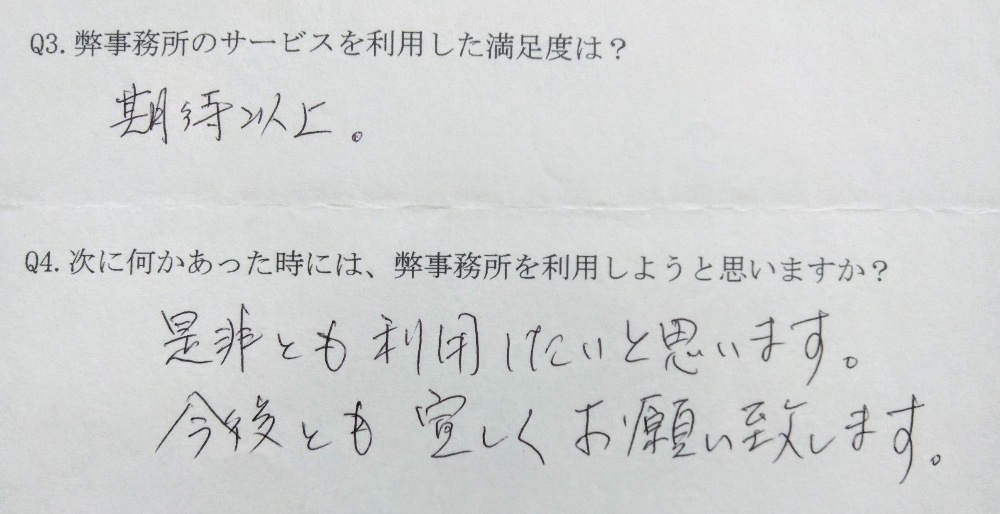 Q3. 弊事務所のサービスを利用した満足度は？
期待以上。
Q4. 次に何かあった時には、弊事務所を利用しようと思いますか？
是非とも利用したいと思います。
今後とも宜しくお願い致します。